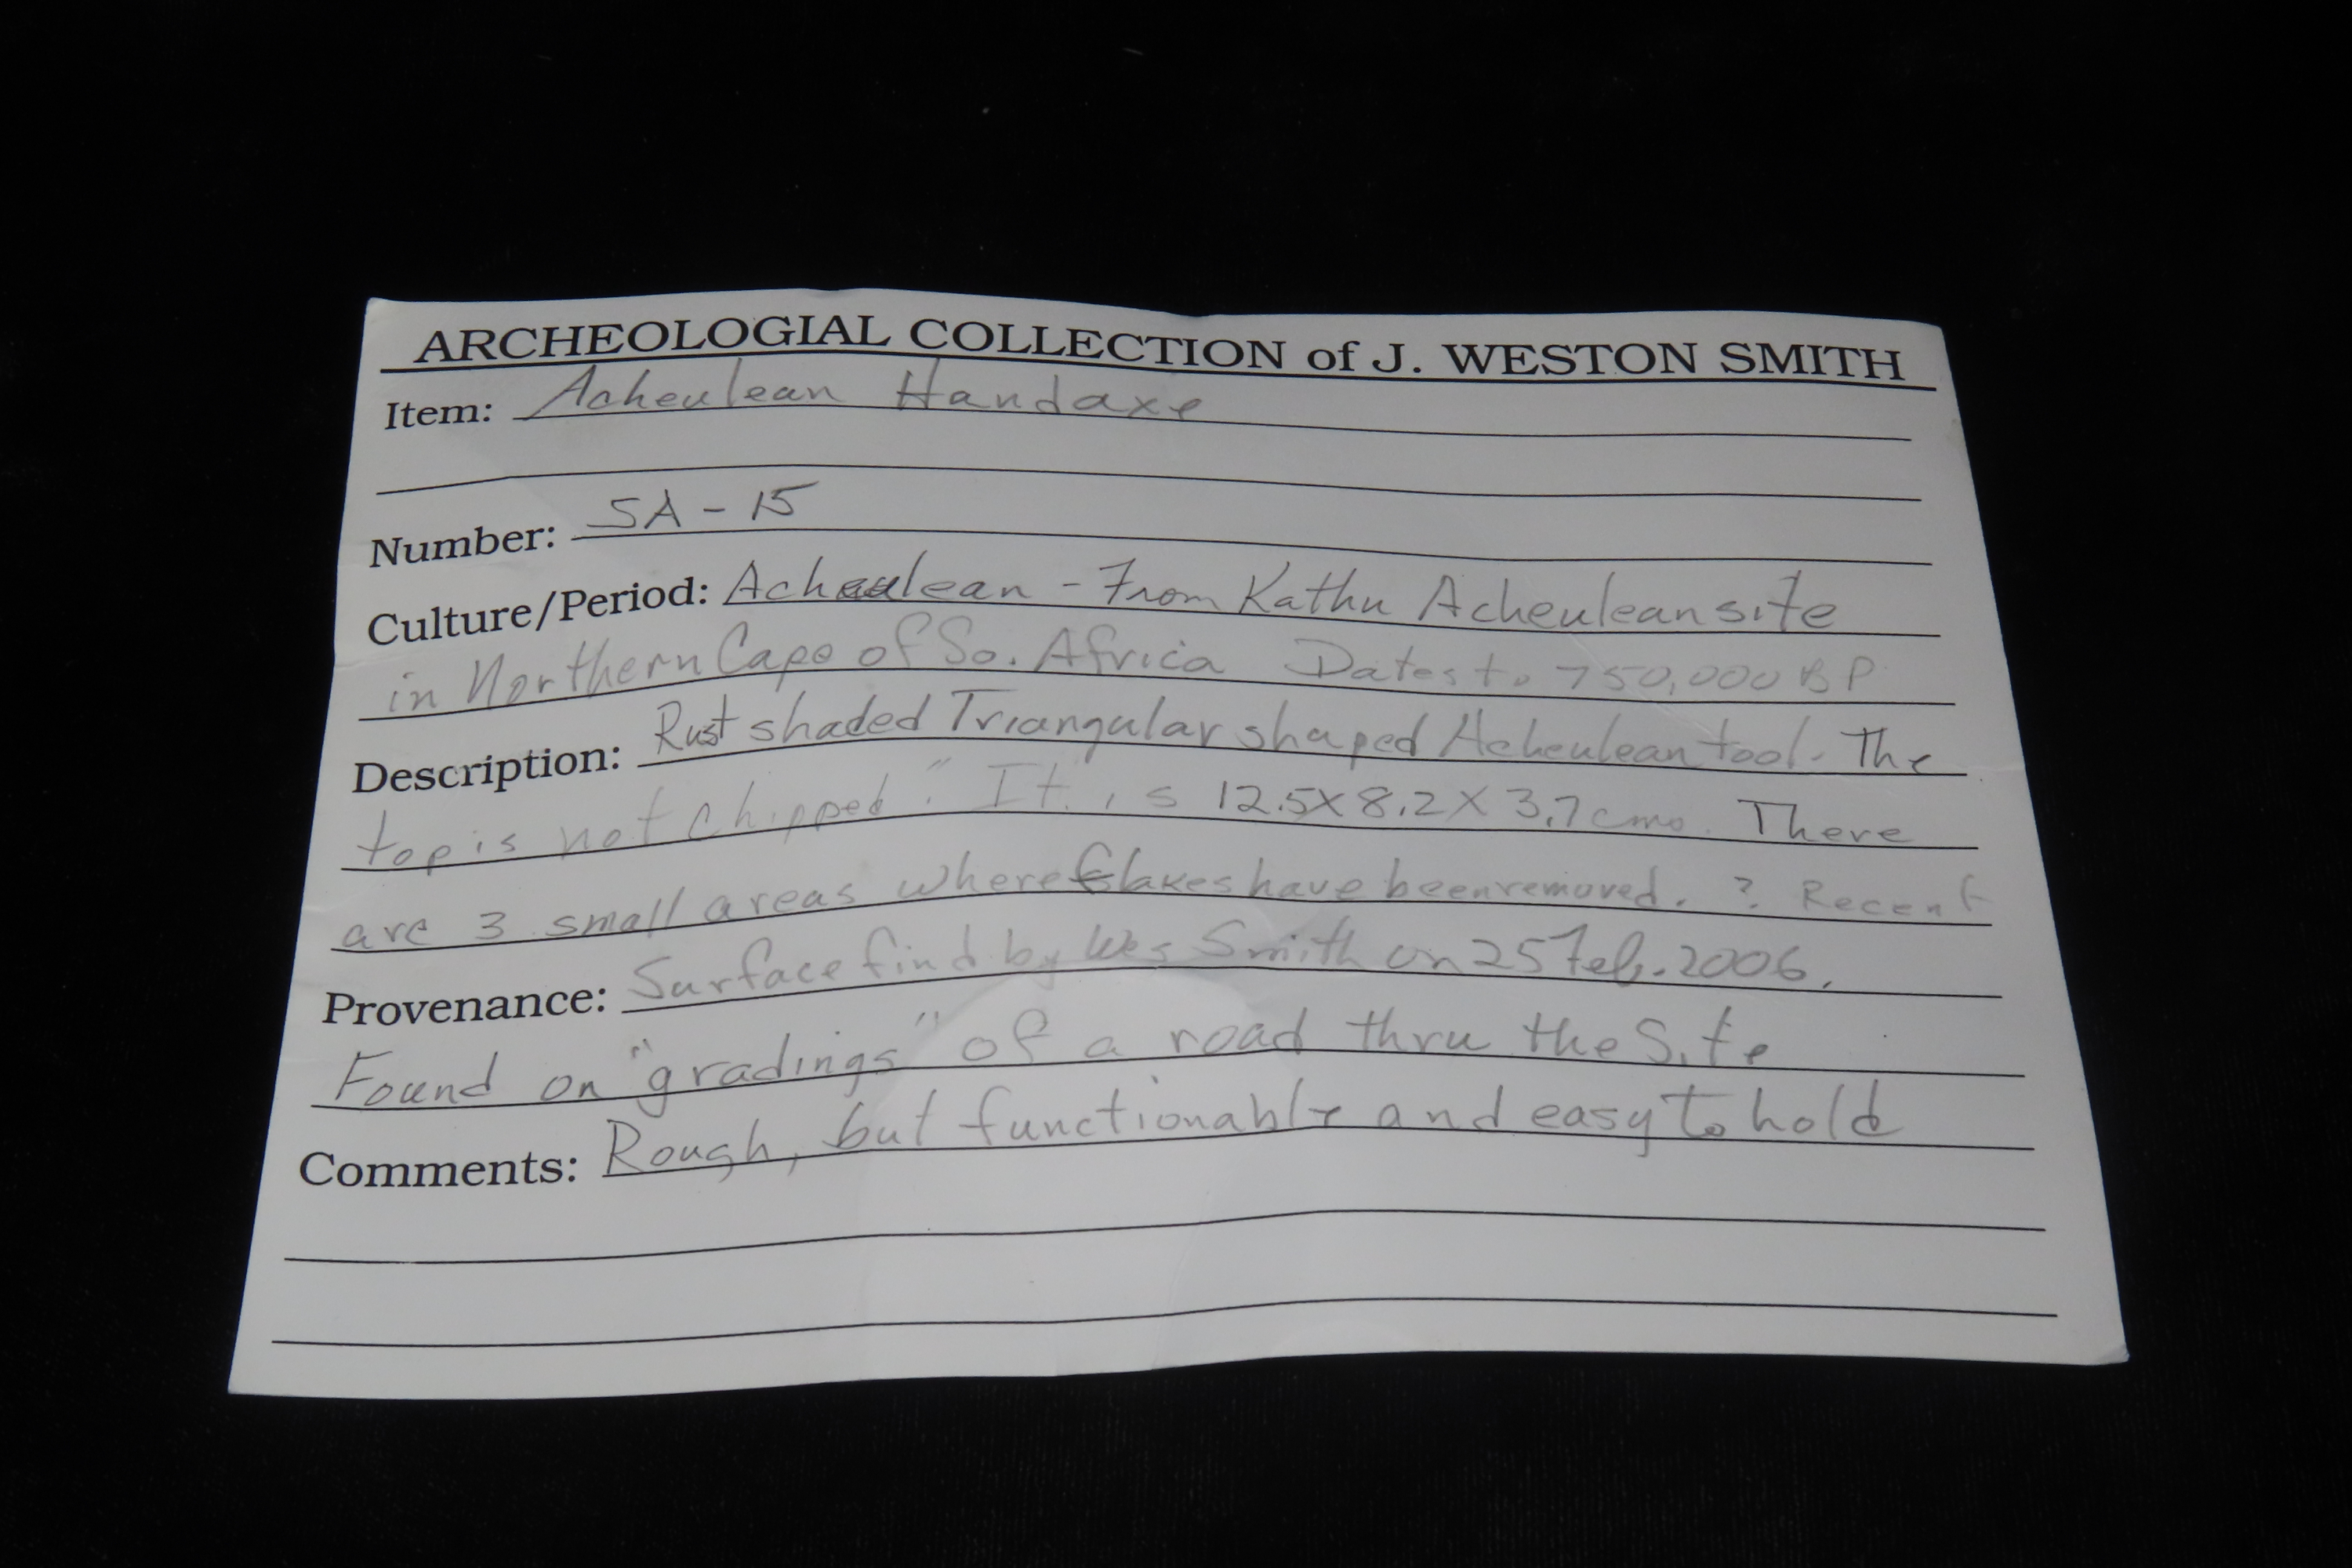 ARCHEOLOGIAL COLLECTION of J. WESTON SMITH
Item: Acheulean Handaxe
Number: SA - 15
Culture/Period: Acheulean - From Kathu Acheulean site
in Northern Cape of So. Africa Dates to 750,000 BP
Description: Rust shaded Triangular shaped Acheulean tool. The
top is not chipped". It is 12.5X8.2X3.7cms. There
are 3 small areas where flakes have been removed. ? Recent
Provenance: Surface find by Wes Smith on 25 Feb. 2006.
Found on "gradings" of a road thru the Site
Comments: Rough, but functionable and easy to hold